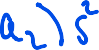 a₂) s²